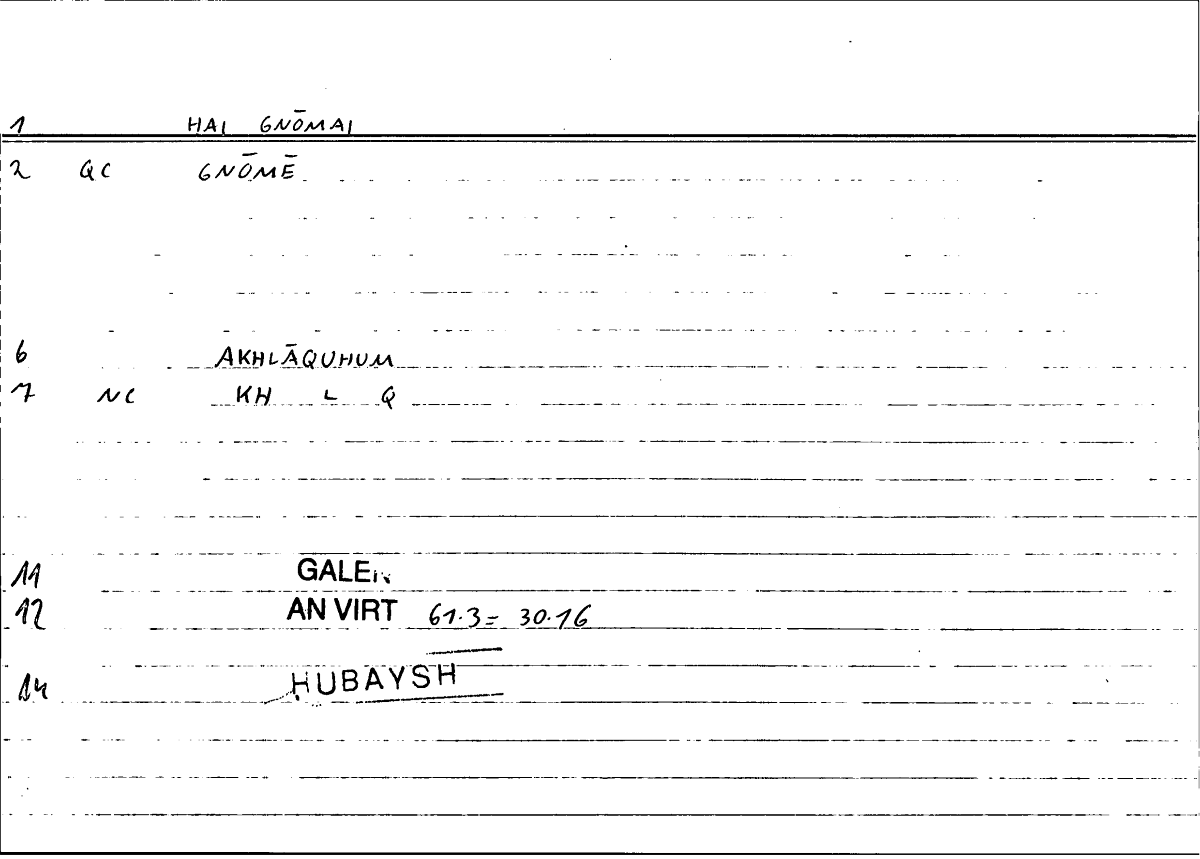 1 HAI GNŌMAI
2 QC GNŌMĒ
6 AKHLĀQUHUM
7 NC KH L Q
11 GALEN
12 AN VIRT 61.3 = 30.16
14 HUBAYSH